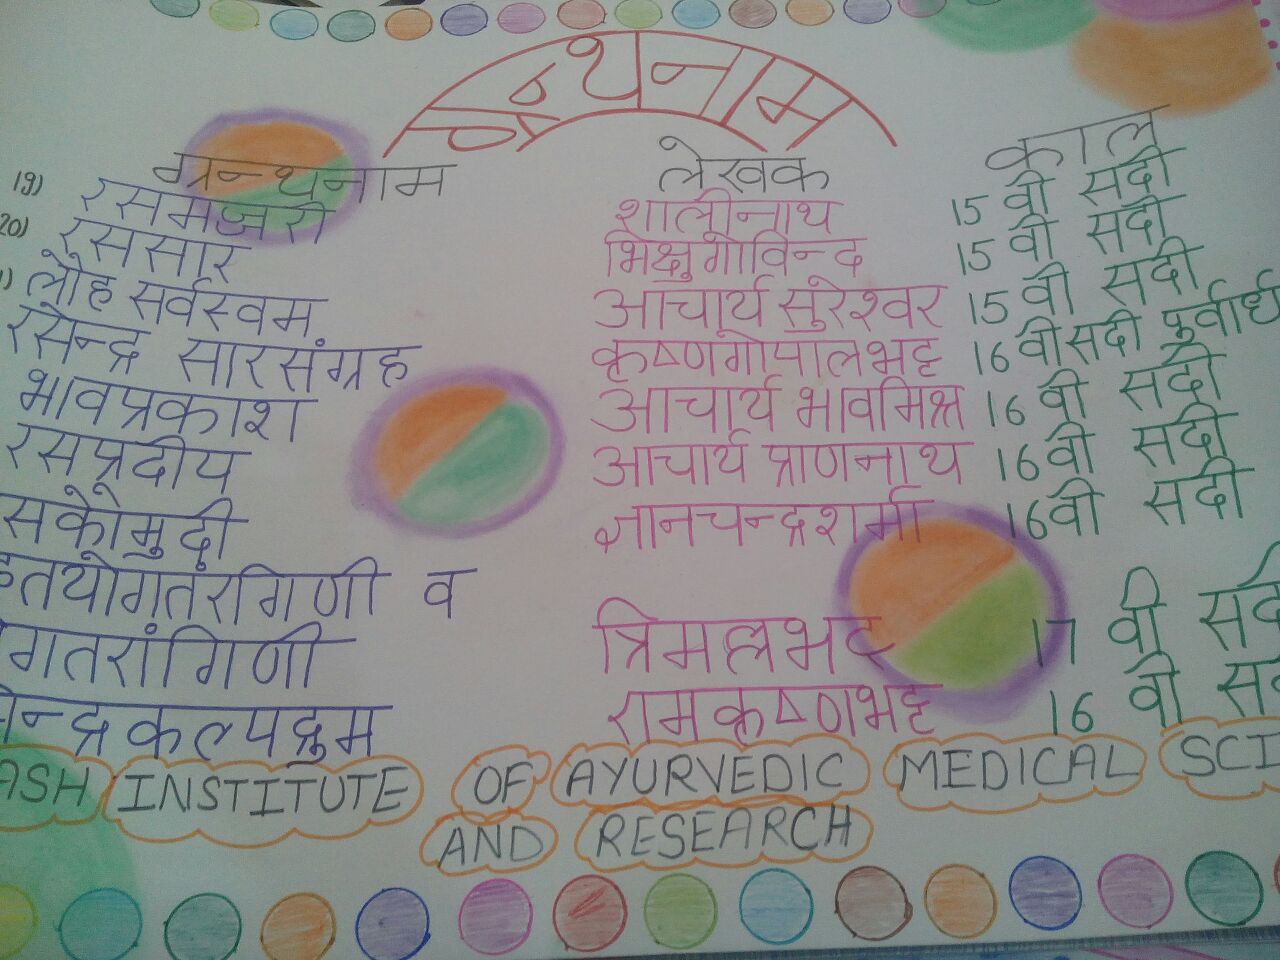 ग्रन्थनाम
ग्रन्थनाम लेखक काल
19) रसमञ्जरी शालीनाथ 15 वी सदी
20) रससार भिक्षुगोविन्द 15 वी सदी
1) लौह सर्वस्वम आचार्य सुरेश्वर 15 वी सदी
रसेन्द्र सारसंग्रह कृष्णगोपालभट्ट 16 वी सदी पूर्वार्ध
भावप्रकाश आचार्य भावमिश्र 16 वी सदी
रसप्रदीप आचार्य प्राणनाथ 16 वी सदी
सकौमुदी ज्ञानचन्द्रशर्मा 16 वी सदी
हतयोगतरंगिणी व
गतरांगिणी त्रिमल्लभट 17 वी सदी
ेन्द्रकल्पद्रुम रामकृष्णभट्ट 16 वी स
ASH INSTITUTE OF AYURVEDIC MEDICAL SCI
AND RESEARCH